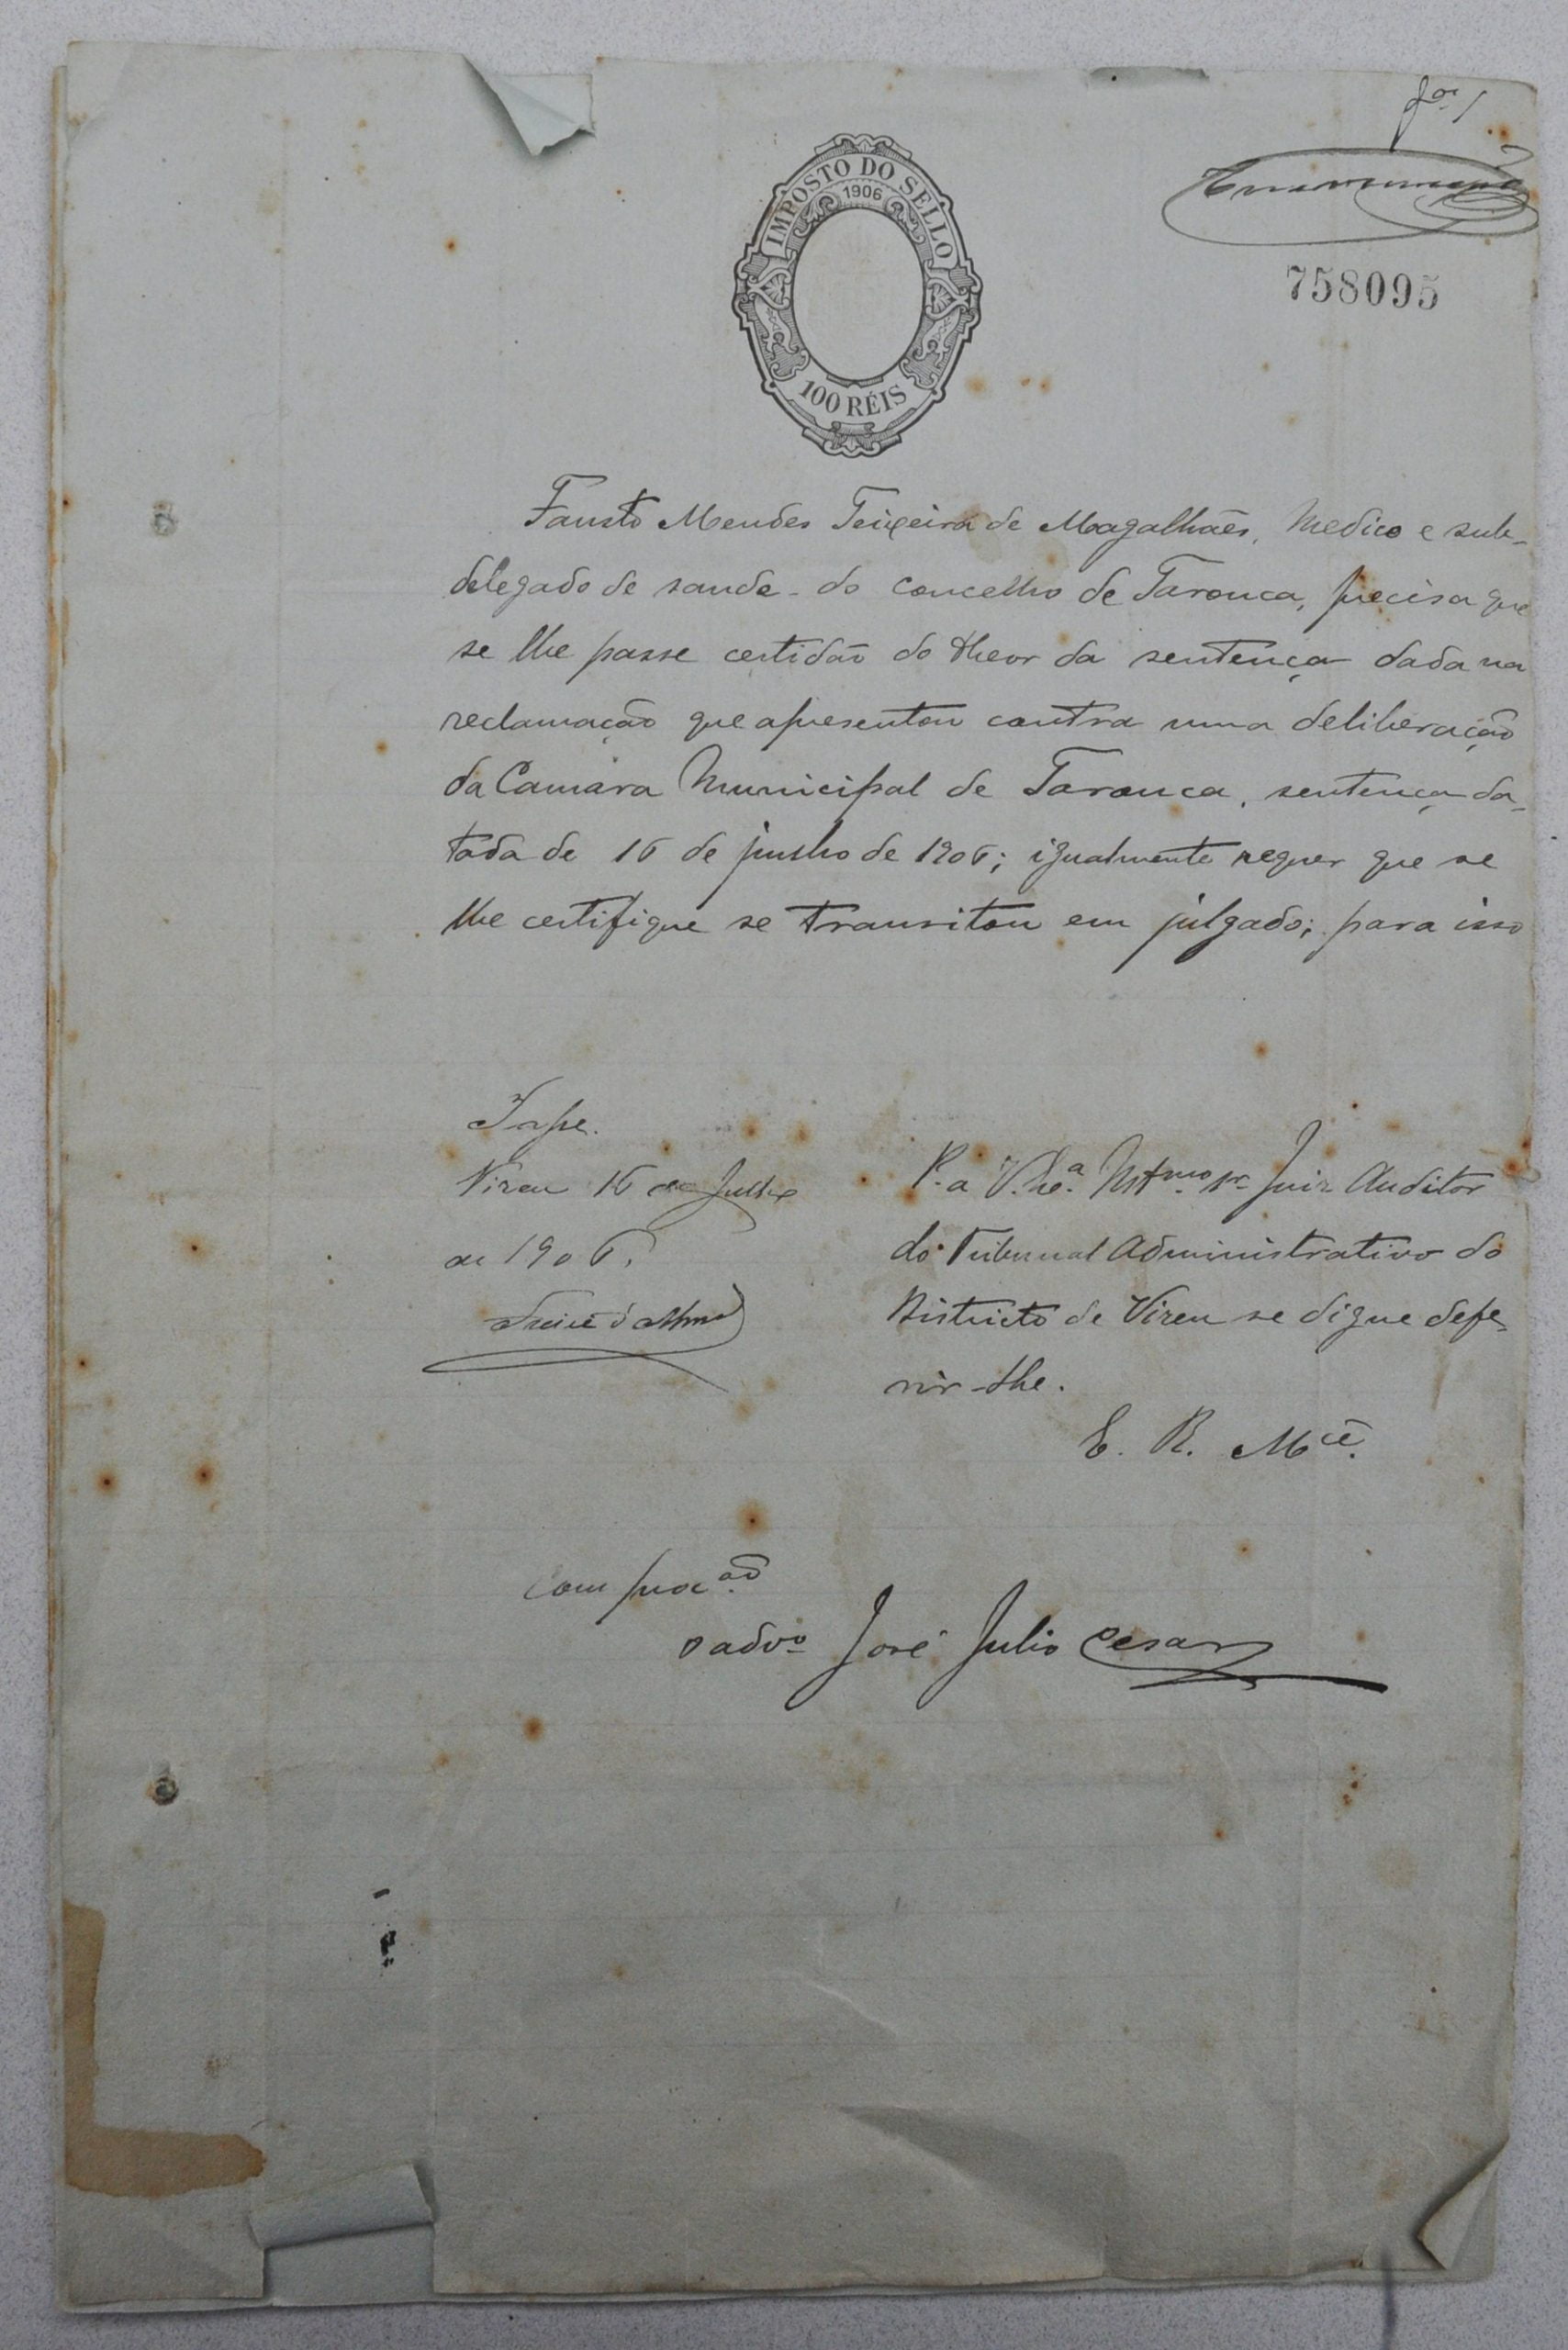 fas 1
IMPOSTO DO SELLO
1906
100 RÉIS
758095
Fausto Mendes Teixeira de Magalhães, Medico e sub-
delegado de saude do concelho de Tarouca, precisa que
se lhe passe certidão do theor da sentença dada na
reclamação que apresentou contra uma deliberação
da Camara Municipal de Tarouca, sentença da-
tada de 16 de junho de 1906; igualmente requer que se
lhe certifique se transitou em julgado; para isso
P. a V. Ex.ª Illmo Sr. Juiz Auditor
do Tribunal Administrativo do
Districto de Vizeu se digne defe-
rir-lhe.
E. R. Mcê.
Passe.
Vizeu 16 de Julho
de 1906.
Com procão
o advo José Julio Cesar